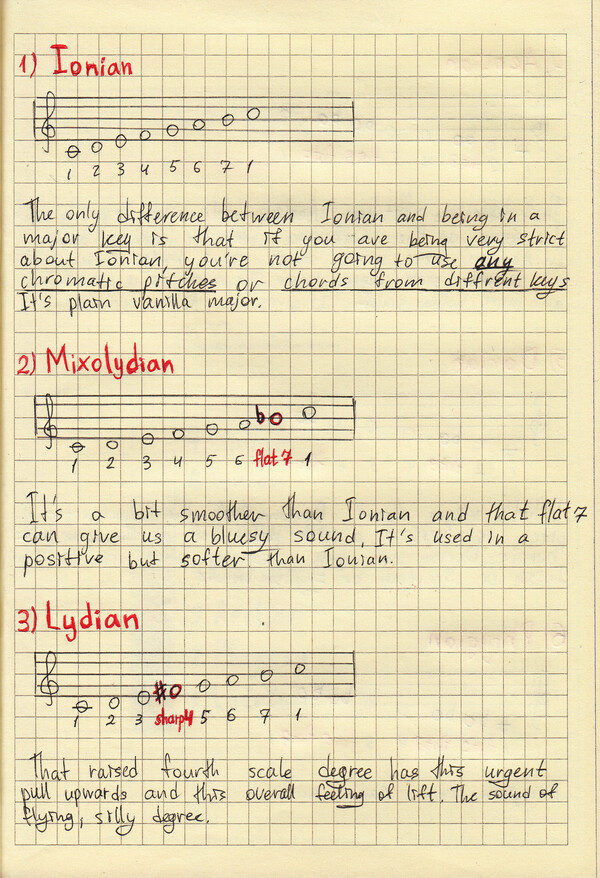 1) Ionian
1 2 3 4 5 6 7 1
The only difference between Ionian and being in a
major key is that if you are being very strict
about Ionian, you're not going to use any
chromatic pitches or chords from diffrent keys
It's plain vanilla major.
2) Mixolydian
1 2 3 4 5 6 flat 7 1
It's a bit smoother than Ionian and that flat 7
can give us a bluesy sound. It's used in a
positive but softer than Ionian.
3) Lydian
1 2 3 sharp4 5 6 7 1
That raised fourth scale degree has this urgent
pull upwards and this overall feeling of lift. The sound of
flying, silly degree.